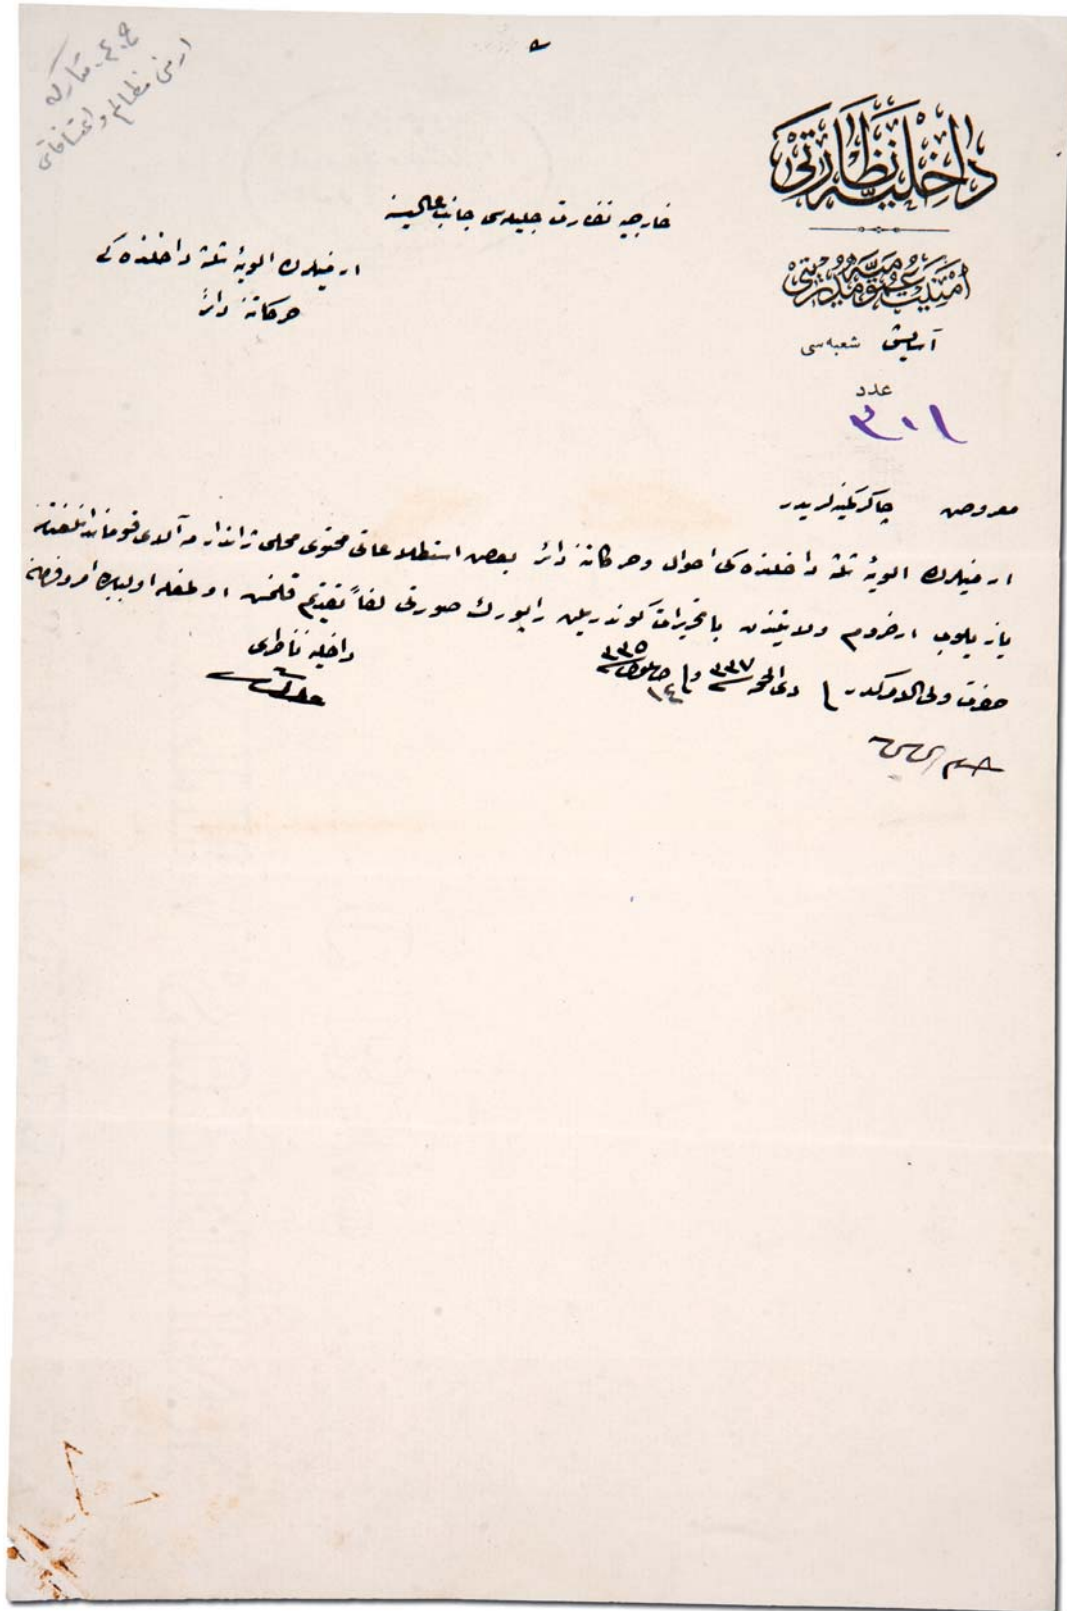 داخلیه نظارتی
امنیت عمومیه مدیریتی
آسایش شعبه سی
عدد
٣٠١
خارجیه نظارت جلیله سی جانب عالیسنه
ارمنیلرك الویهٔ ثلثه داخلنده کی
حرکاتنه دائر
معروض چاکرکمینه لریدر
ارمنیلرك الویهٔ ثلثه داخلنده کی احوال وحرکاتنه دائر بعض استطلاعاتی محتوی محلی ژاندارمه آلای قوماندانلغنه
یازیلوب ارضروم ولایتندن باتحریرات کوندریلن راپورك صورتی لفاً تقدیم قلنمش اولمغله اولبابده امر وفرمان
حضرت ولی الامرکدر ذی الحجه ٣٣٧ و ١٤ ٣٣٥
داخلیه ناظری
ارمنی مظالم و اعتسافاتی